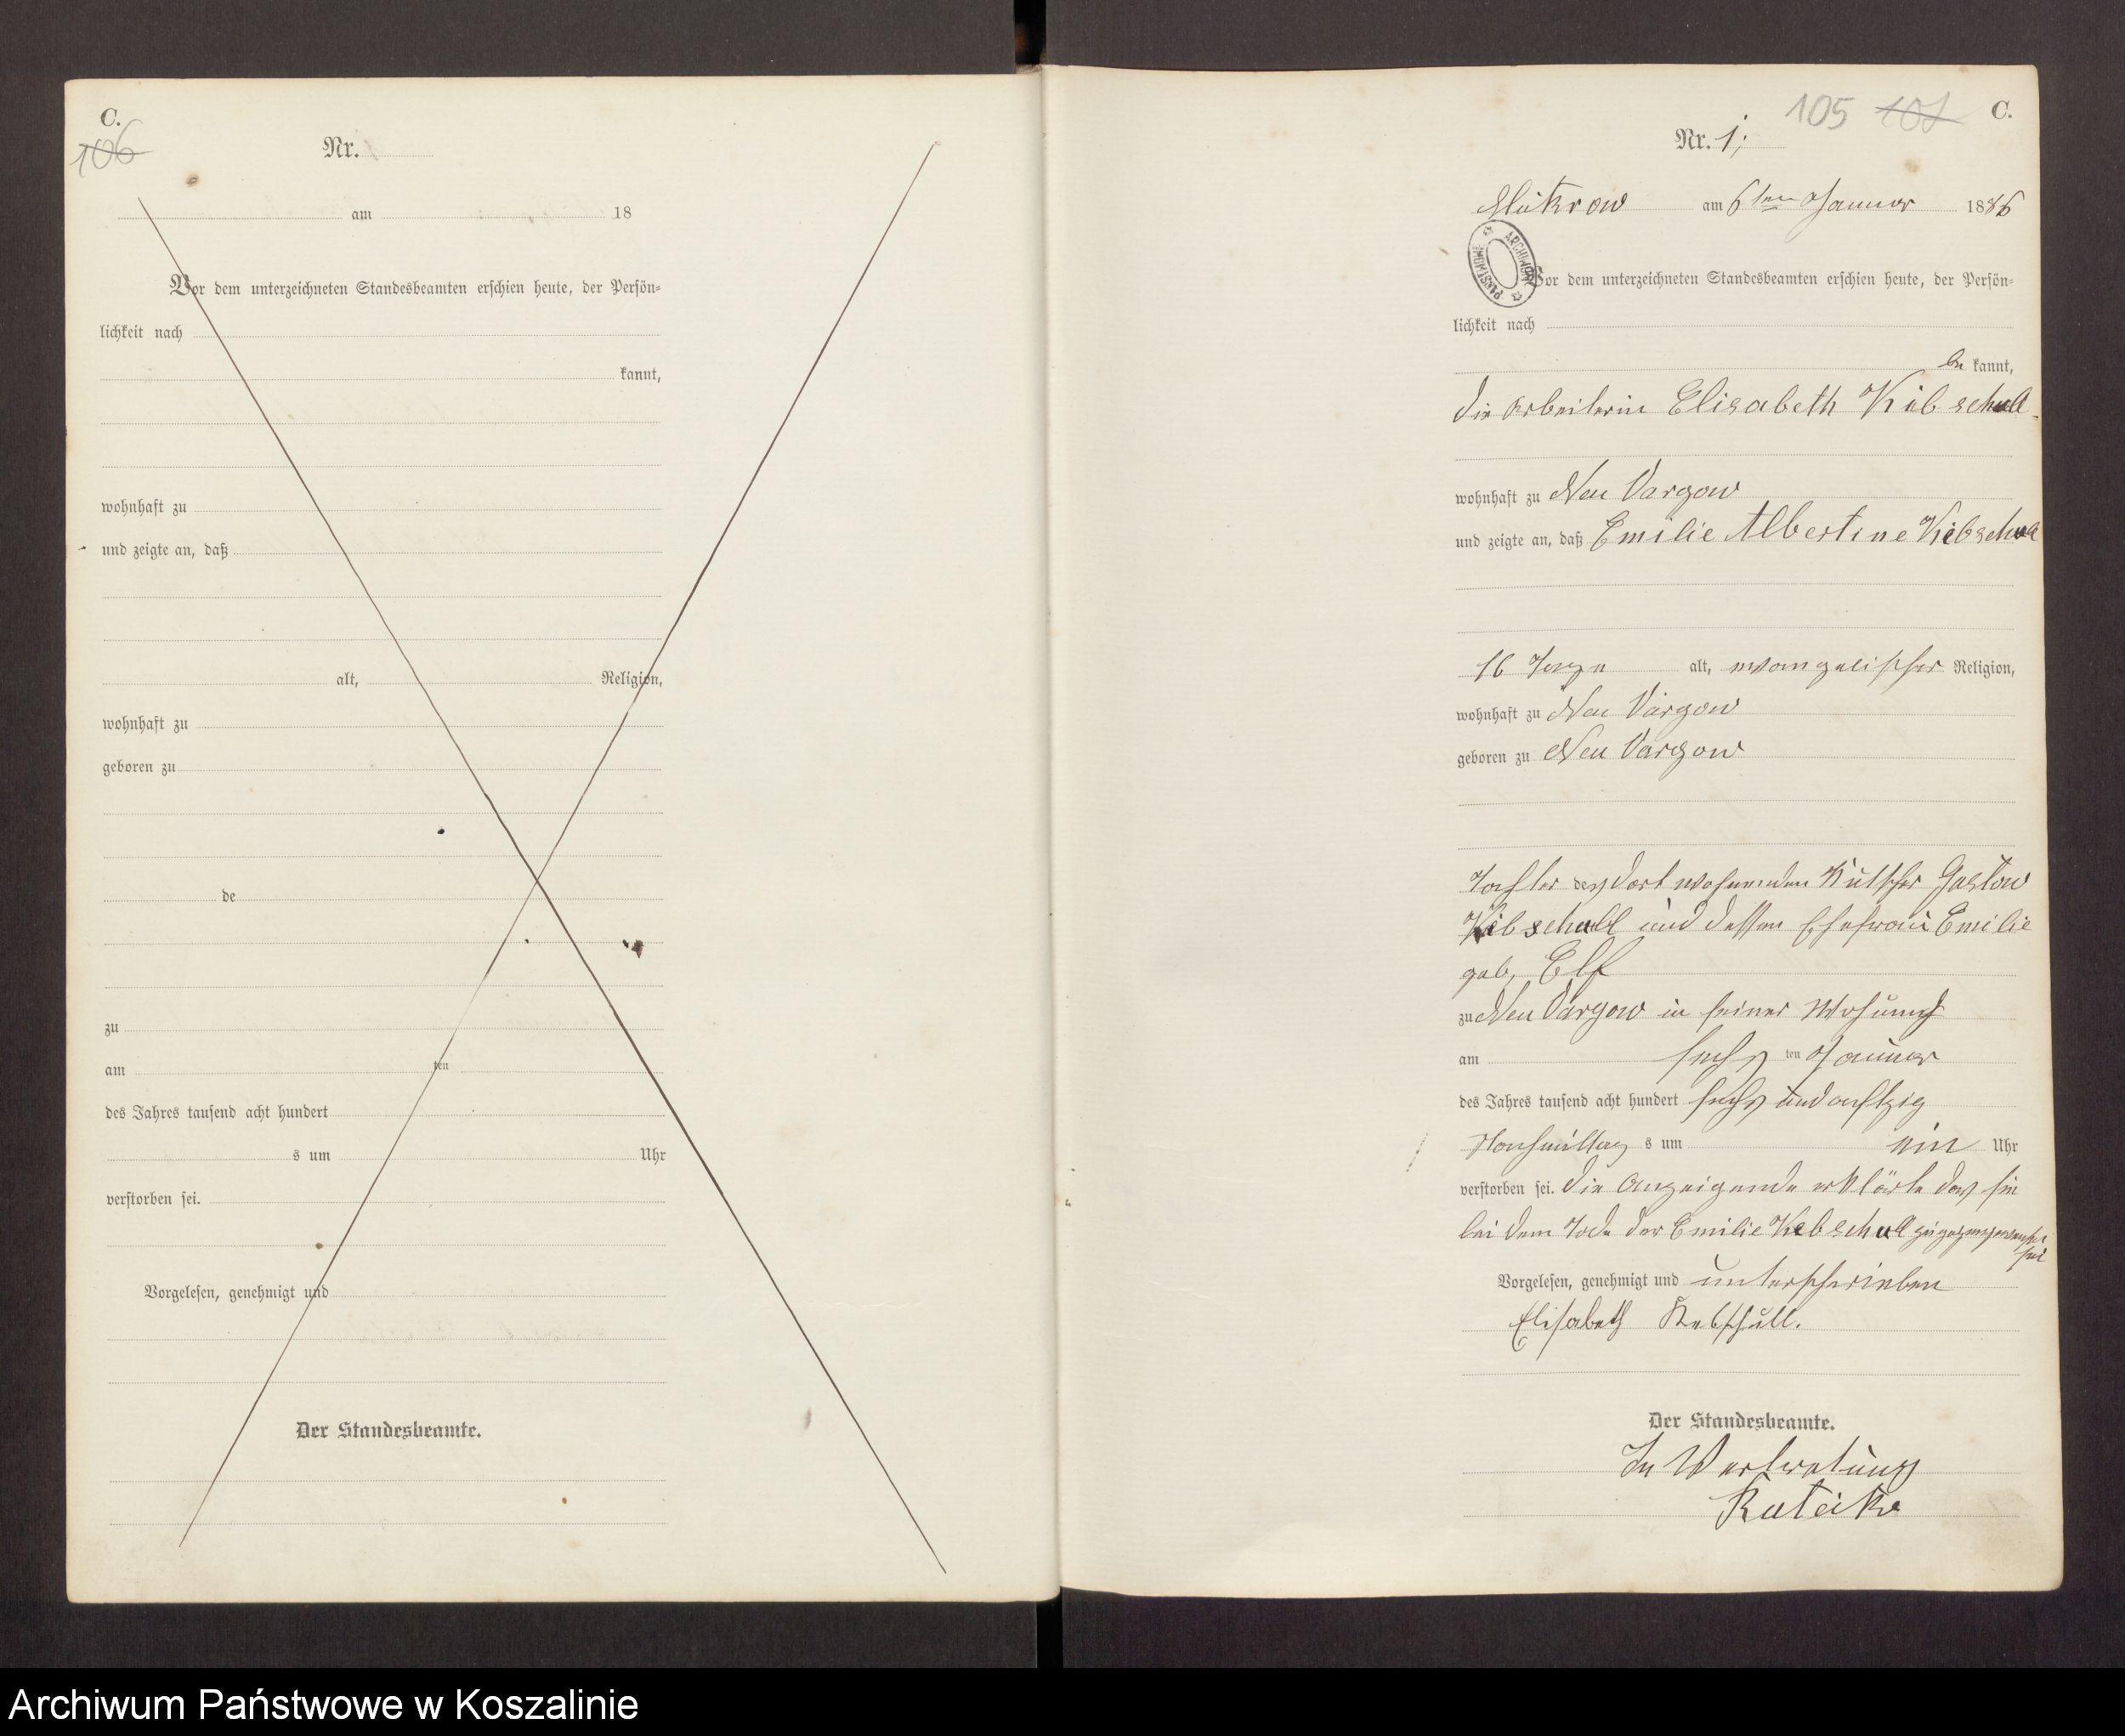 C.
106
Nr.
am 18
Vor dem unterzeichneten Standesbeamten erschien heute, der Persön=
lichkeit nach
kannt,
wohnhaft zu
und zeigte an, daß
alt, Religion,
wohnhaft zu
geboren zu
de
zu
am ten
des Jahres tausend acht hundert
s um Uhr
verstorben sei.
Vorgelesen, genehmigt und
Der Standesbeamte.
105 107 C.
Nr. 1;
Mükrow am 6ten Januar 1886
ARCHIWUM PAŃSTWOWE
Vor dem unterzeichneten Standesbeamten erschien heute, der Persön=
lichkeit nach
be kannt,
die Arbeiterin Elisabeth Kebschull
wohnhaft zu Neu Vargow
und zeigte an, daß Emilie Albertine Kebschull
16 Tage alt, evangelischer Religion,
wohnhaft zu Neu Vargow
geboren zu Neu Vargow
Tochter des dort wohnenden Kutscher Gustav
Kebschull und dessen Ehefrau Emilie
geb, Elf
zu Neu Vargow in seiner Wohnung
am sechs ten Januar
des Jahres tausend acht hundert sechs und achtzig
Nachmittag s um ein Uhr
verstorben sei. die Anzeigende erklärte das sie
bei dem Tode der Emilie Kebschull zugegen gewesen
sei
Vorgelesen, genehmigt und unterschrieben
Elisabeth Kebschull.
Der Standesbeamte.
In Vertretung
Kuteike
Archiwum Państwowe w Koszalinie